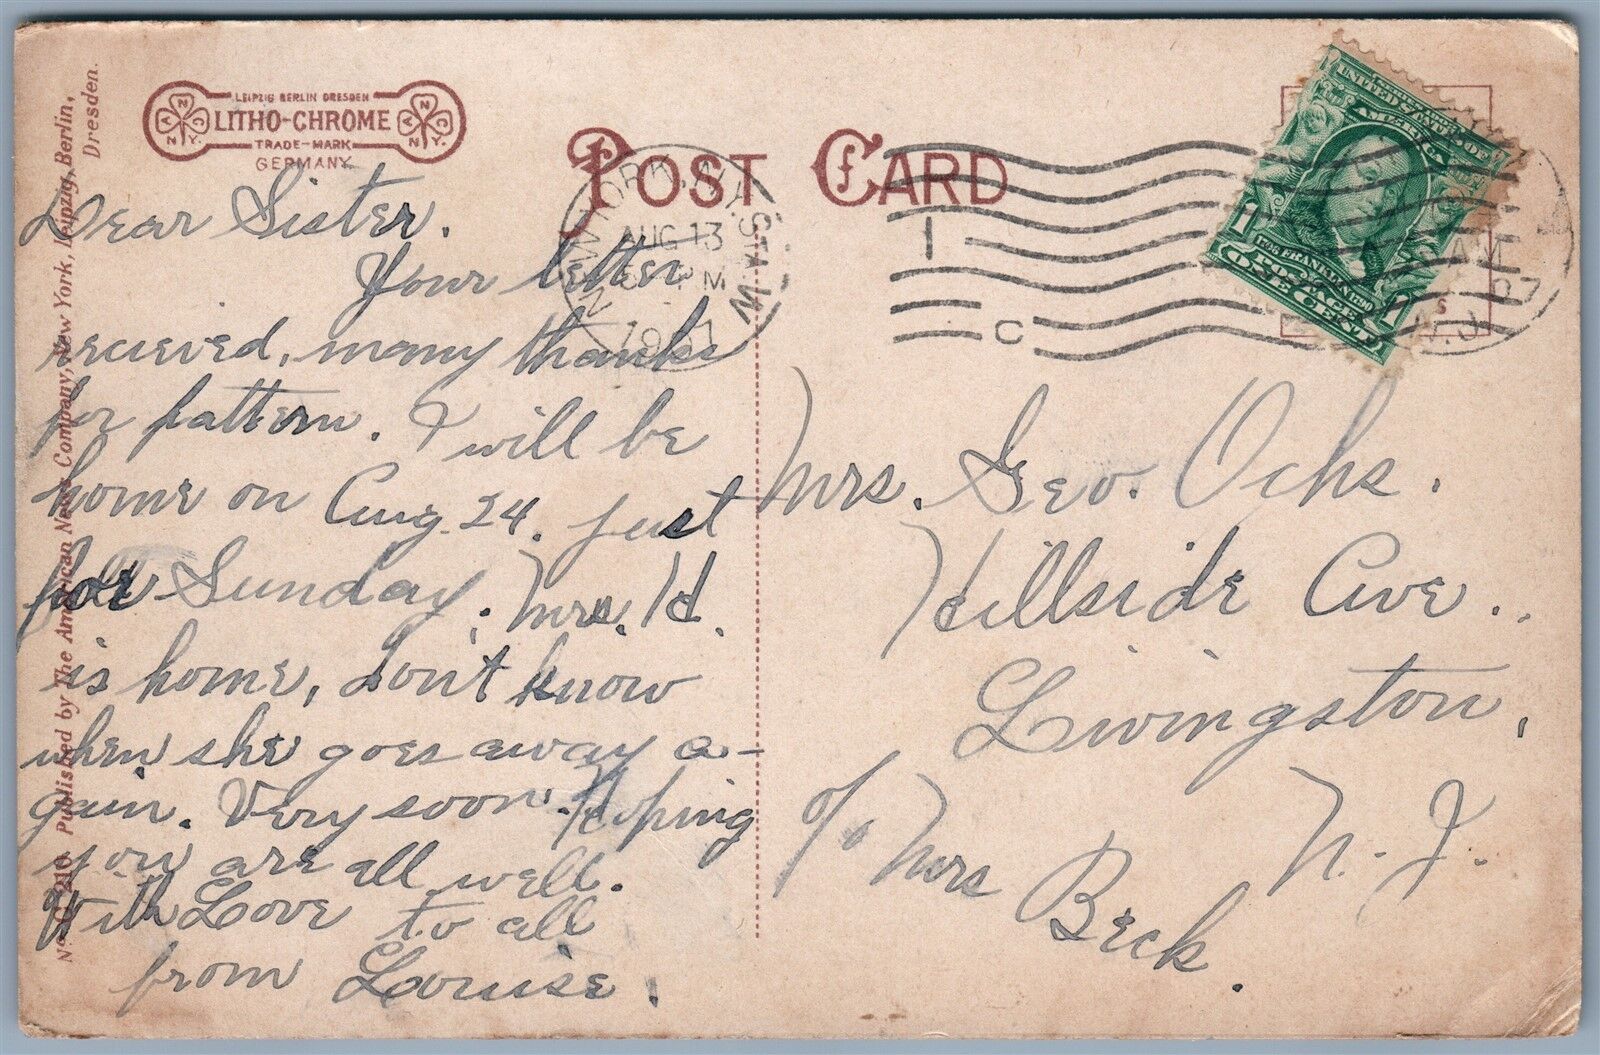 LEIPZIG BERLIN DRESDEN
LITHO-CHROME
TRADE-MARK
GERMANY
POST CARD
NEW YORK, N.Y. STA. W
AUG 13
PM
1907
1
C
UNITED STATES OF
AMERICA
1
FRANKLIN 1790
POSTAGE
ONE CENT
1
AM
07
N.J.
Dear Sister.
Your letter
recieved, many thanks
for pattern. I will be
home on Aug. 24. just
for Sunday. Mrs. H.
is home, don't know
when she goes away a-
gain. Very soon. Hoping
you are all well.
With Love to all
from Louise.
Mrs. Geo. Ochs.
Hillside Ave.
Livingston,
N. J.
c/o Mrs
Beck.
No. C 210. Published by The American News Company, New York, Leipzig, Berlin,
Dresden.